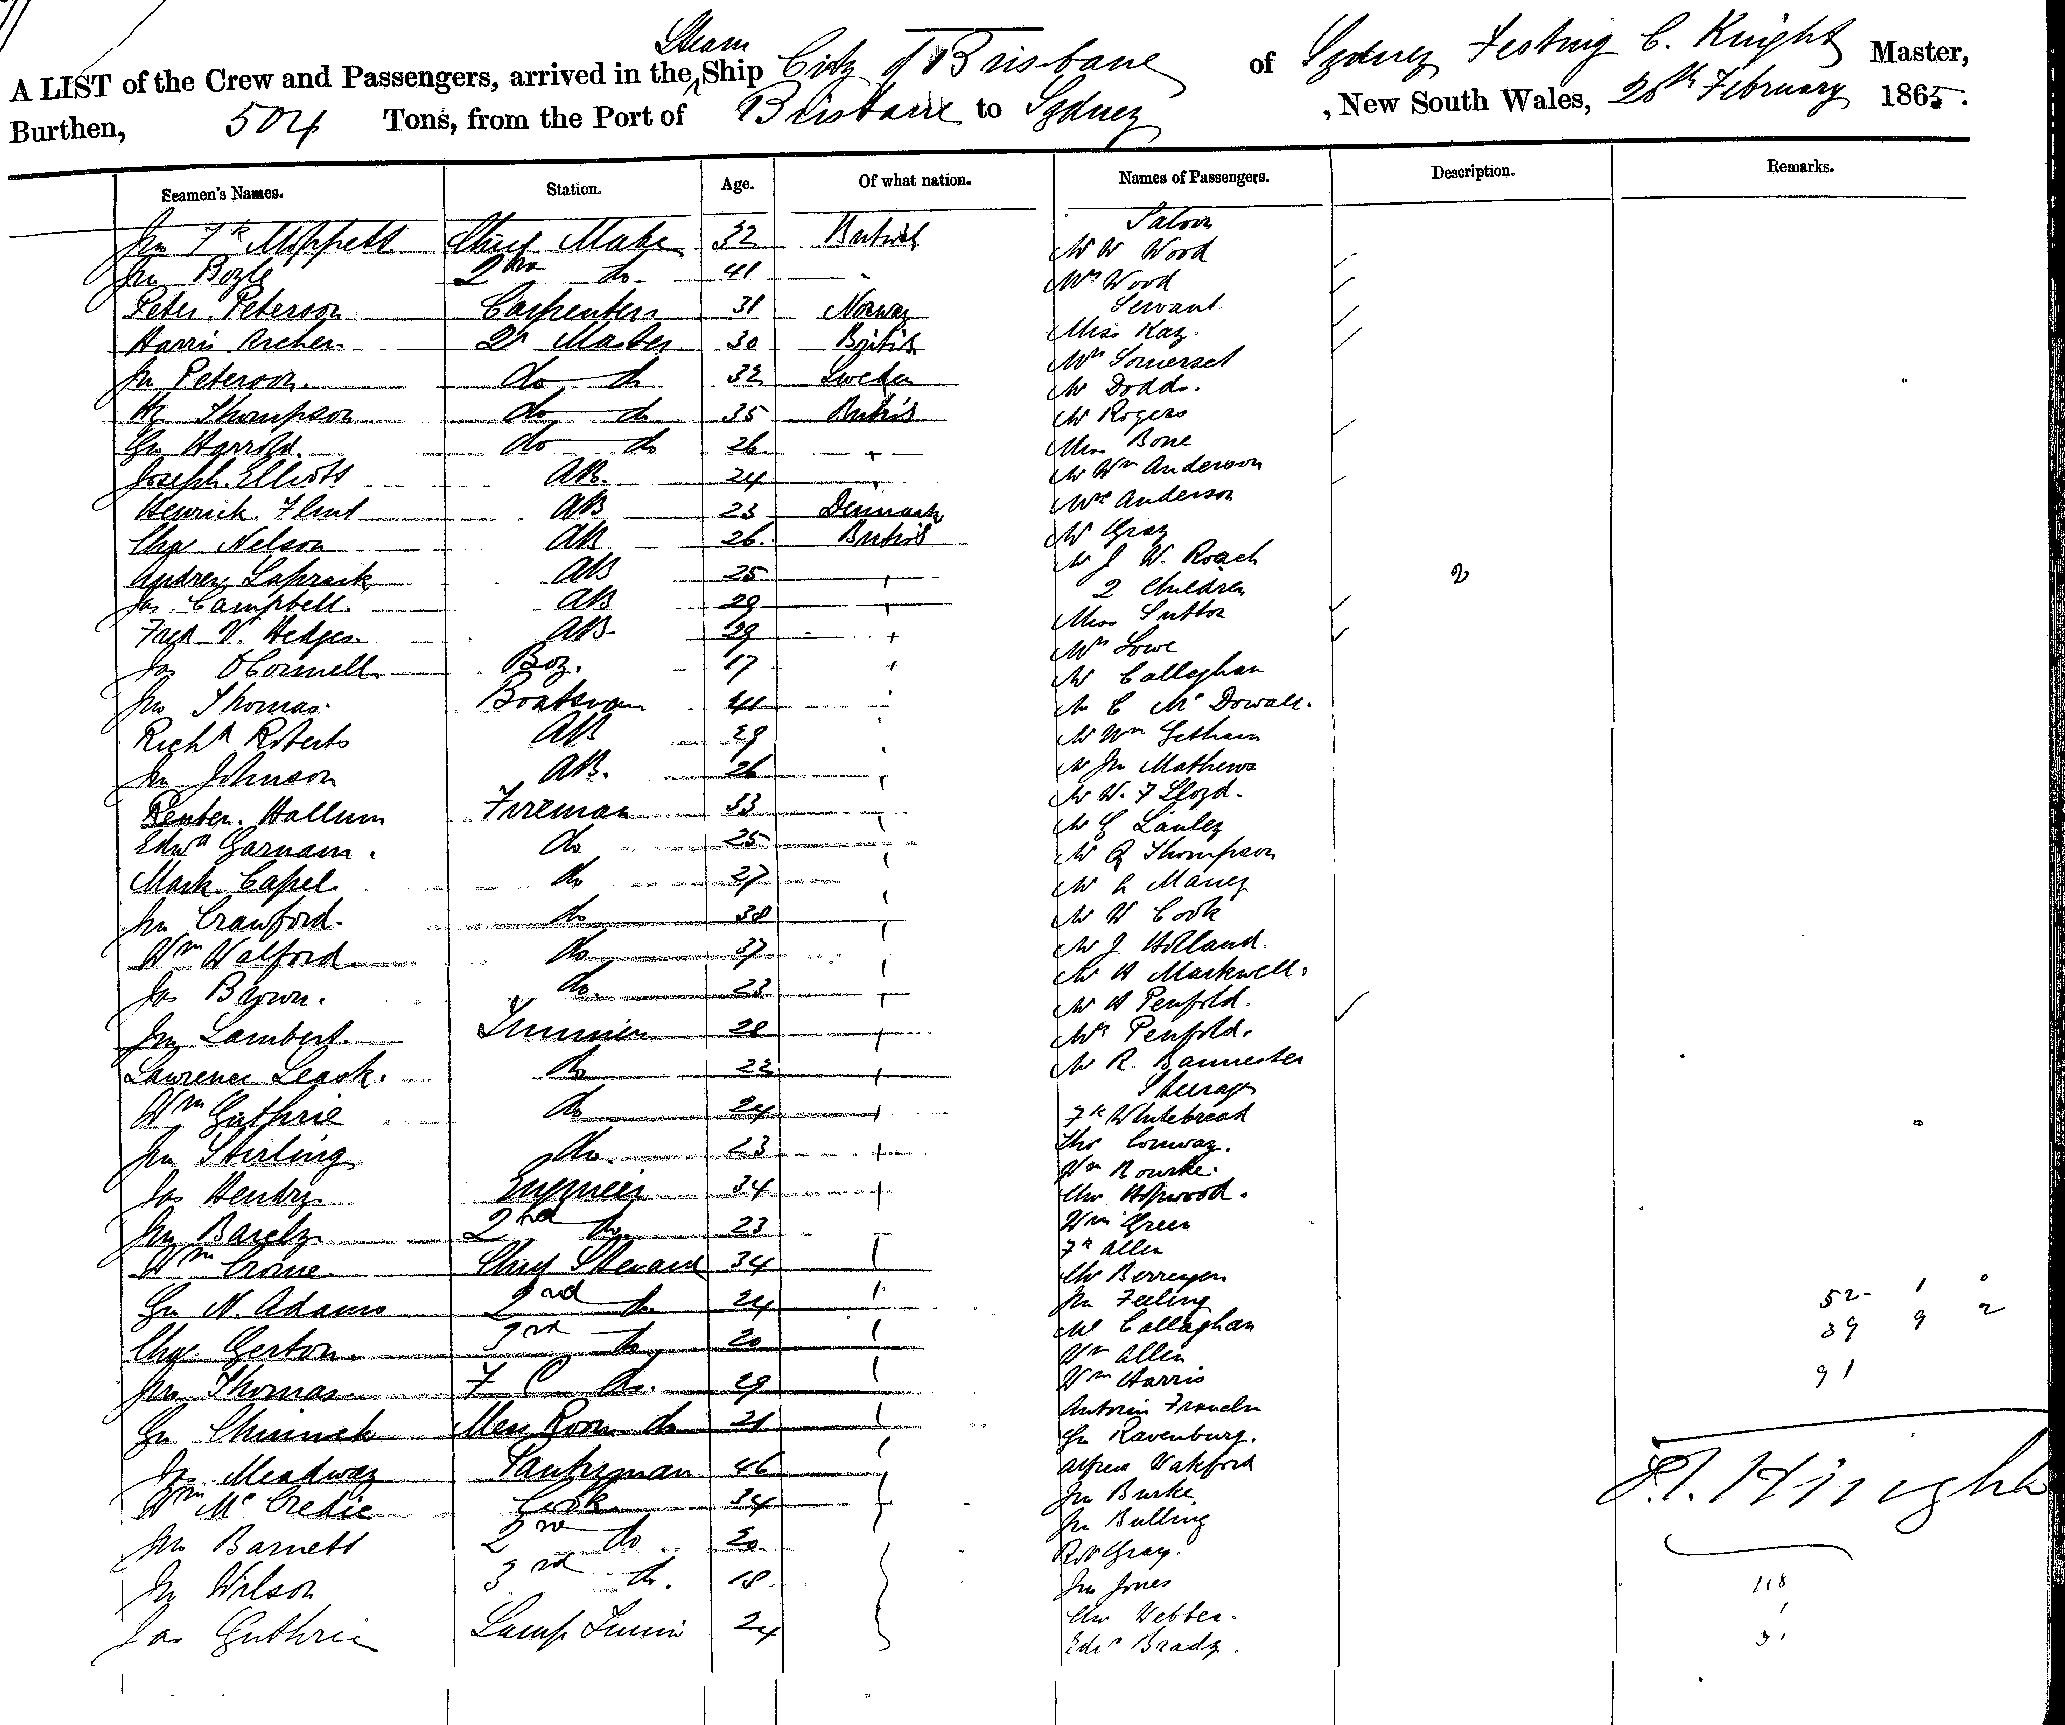 Steam
A LIST of the Crew and Passengers, arrived in the Ship City of Brisbane of Sydney Festing C. Knight Master,
Burthen, 504 Tons, from the Port of Brisbane to Sydney, New South Wales, 28th February 1865.
Seamen's Names. Station. Age. Of what nation. Names of Passengers. Description. Remarks.
Saloon
Jn Fk Moppett Chief Mate 32 British Mr W Wood
Jn Boyle 2nd do 41 Mrs Wood
Peter Peterson Carpenter 31 Norway Servant
Harris Archer 2r Master 30 British Miss Kay
Jn Peterson do do 32 Sweden Mrs Somerset
Mr Dodds.
Hy Thompson do do 35 British Mr Rogers
Geo Harrold do do 26 Miss Bone
Joseph Elliott AB 24 Mr Wm Anderson
Henrick Flint AB 23 Denmark Mrs Anderson
Chas Nelson AB 26 British Mr Gray
Mr J W. Roach
Andrew AB 25 2 Children 2
Jas Campbell AB 29 Miss Sutton
Fredk V. Hedges AB 29 Mrs Lowe
Jas OConnell Boy. 17 Mr Callaghan
Jn Thomas Boatswain 41 Mr C McDowall.
Richd Roberts AB 29 Mr Wm
Jn Johnson AB. 26 Mr Jn Mathews
Reuben Hallum Fireman 33 Mr W. F Lloyd.
Edwd Garnam. do 25 Mr G
Mr Thompson
Mark Capel do 27 Mr
Jn Crawford. do 38 Mr W Cook
Wm Walford do 37 Mr J Holland.
Mr H Markwell.
Jas Brown. do 23 Mr H Penfold.
Jn Lambert Trimmer 28 Mrs Penfold.
Lawrence Leask. do 22 Mr R. Bannester
Steerage
Wm Guthrie do 24 Fk Whitebread
Jn Stirling do 23 Thos Conway.
Wm Rourke.
Jas Hendry Engineer 34 Chs Hopwood.
Jn 2nd do 23 Wm Green
Fk Allen
Wm Crone Chief Steward 34 Chs
Geo N. Adams 2nd do 24 Jn Feeling 52 1
Chas Gerton 3rd do 20 Mr Callaghan 39 9 2
Wm Allen
Jn Thomas F C do. 29 Wm Harris 91
Geo Mess Room do 21 Antonin
Geo Ravenburg.
Jn Meadway Pantryman 46 Alfred Wakford
Wm McCredie Cook 34 Jn Burke
Jn Bulling
Jn Barnett 2nd do 20 Robt Gray.
Jn Wilson 3rd do. 18 Jn Jones 118
Chs Webber.
Jas Guthrie Lamp Trimr 24 Edwd Brady.